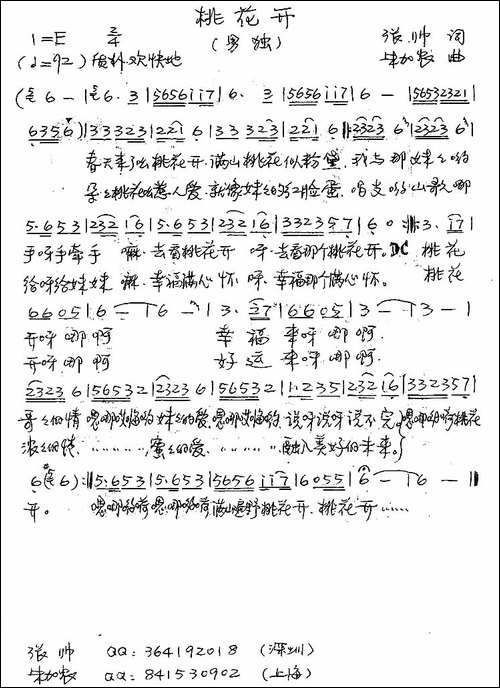 桃花开
1=E 2/4 (男独) 张帅 词
(♩=92) 欢快地 朱加农 曲
(6 - | 6. 3 | 5656 i i 7 | 6. 3 | 5656 i i 7 | 6 - | 56532321 |
6356) | 33323 | 221 6 | 33323 | 221 6 |: 2323 6 | 2323 6 |
春天来了桃花开.满山桃花似粉黛.我与那妹妹哟
朵朵桃花惹人爱.就像妹妹的红脸蛋.唱支山歌哪
5.653 | 232 16 | 5.653 | 23216 | 332357 | 6 0 :| 3. i7 |
手呀手牵手 嘛.去看桃花开 呀.去看那个桃花开。DC 桃花
给呀给妹妹 嘛.幸福满心怀 呀.幸福那个满心怀。 桃花
6605 | 6 - | 6 - | 3. 27 | 6605 | 3 - | 3 - |
开呀哪啊 幸福来呀哪啊.
开呀哪啊 好运来呀哪啊.
2323 6 | 56532 | 2323 6 | 56532 | 1.235 | 232 16 | 332357 |
哥哥的情 妹妹的爱 说呀说呀说不完 桃花
浓浓的情 ……… 蜜蜜的爱. ……… 融入美好的未来。
6 (6) :| 5.653 | 5.653 | 5656 i i 7 | 6055 | 6 - | 6 - ||
开。 满山遍野桃花开.桃花开……
张帅 QQ:364192018 (深圳)
朱加农 QQ:841530902 (上海)